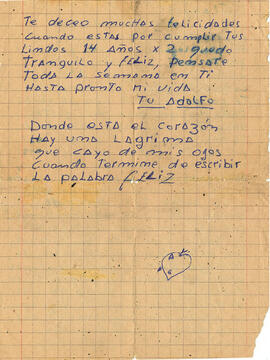 Te deceo muchas felicidades
Cuando estas por cumplir tus
Lindos 14 Años x 2 quedo
Tranquilo y feliz, pensare
Toda la semana en Ti
Hasta pronto mi vida
Tu Adolfo
Donde esta el corazón
Hay una Lagrima
que cayo de mis ojos
Cuando termine de escribir
La palabra feliz